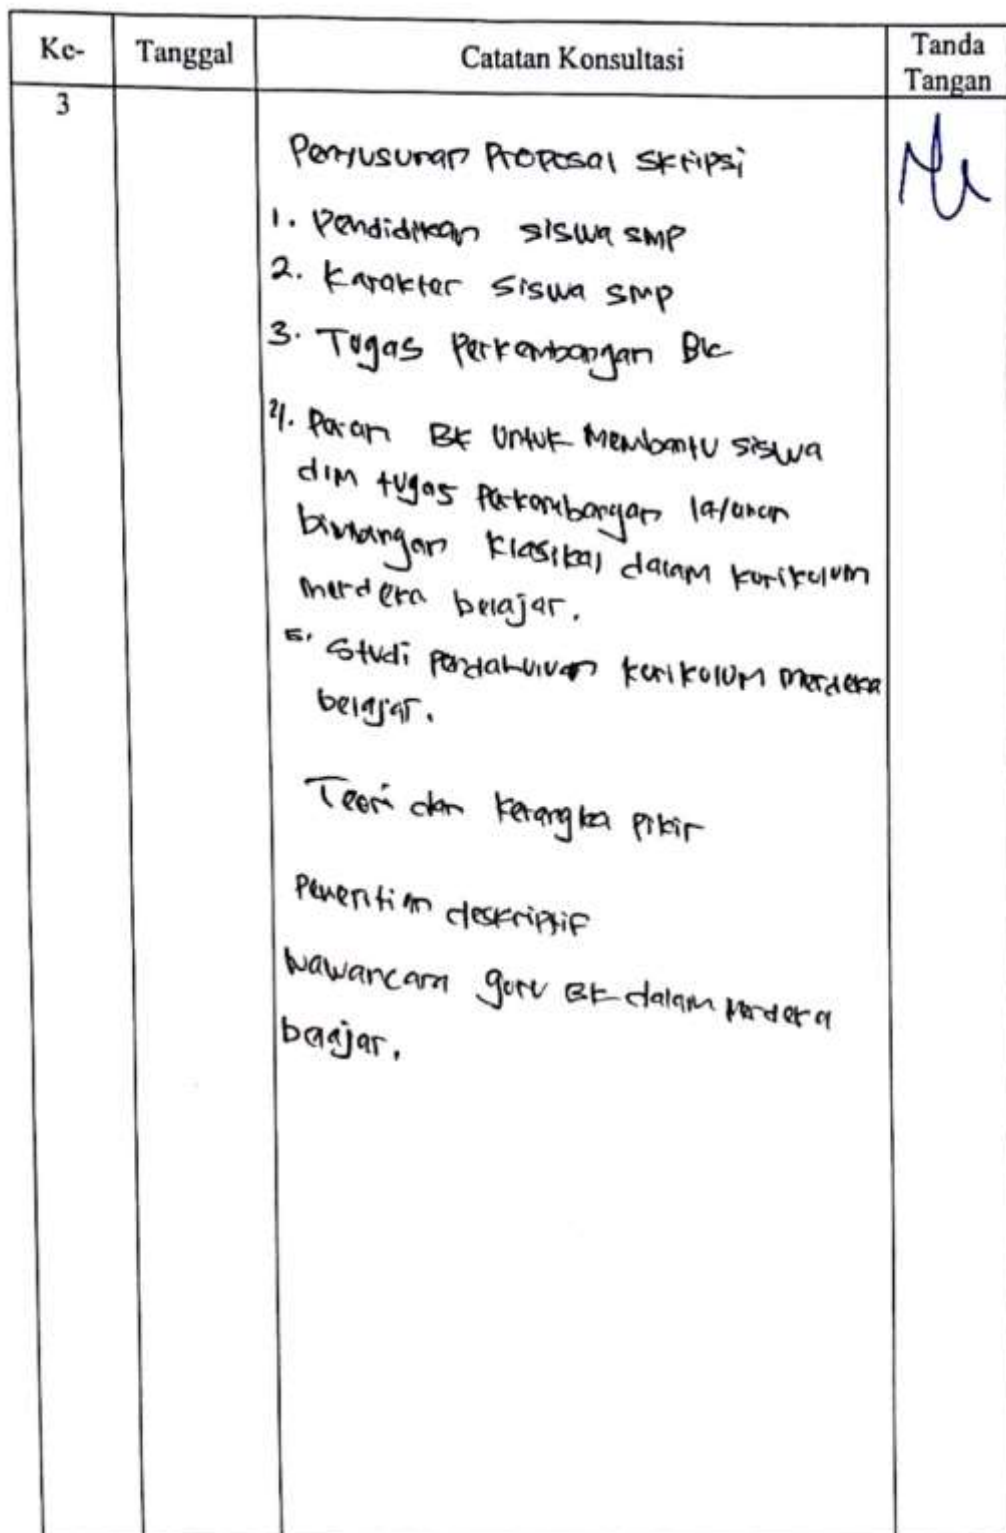 Ke- Tanggal Catatan Konsultasi Tanda Tangan
3
Penyusunan Proposal Skripsi
1. Pendidikan siswa SMP
2. Karakter siswa SMP
3. Tugas Perkembangan BK
4. Peran BK untuk Membantu siswa
dlm tugas Perkembangan layanan
bimbingan klasikal dalam kurikulum
merdeka belajar.
5. Studi pendahuluan kurikulum merdeka
belajar.
Teori dan kerangka pikir
Penelitian deskriptif
Wawancara guru BK dalam merdeka
belajar.